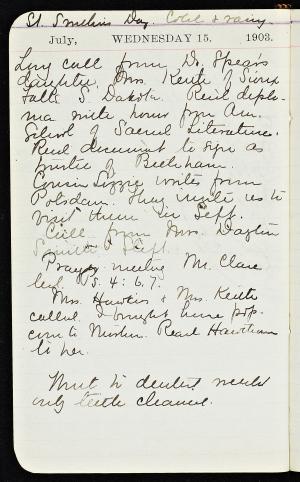 St. Swithins Day. Cold & rainy.
July, WEDNESDAY 15, 1903.
Long call from Dr. Spear's
daughter, Mrs. Keith of Sioux
Falls S. Dakota. Rec'd diplo-
ma with honor from Am.
School of Sacred Literature.
Rec'd document to sign as
trustee of
Cousin Lizzie writes from
Potsdam. They invite us to
visit them in Sept.
Call from Mrs. Dayton
Prayer meeting Mr. Clare
led. Ps. 4: 6, 7.
Mrs. Hawkins & Mrs. Keith
called. I brought home pop
corn to Mother. Read Hawthorne
to her.
Went to dentist needed
only teeth cleaned.